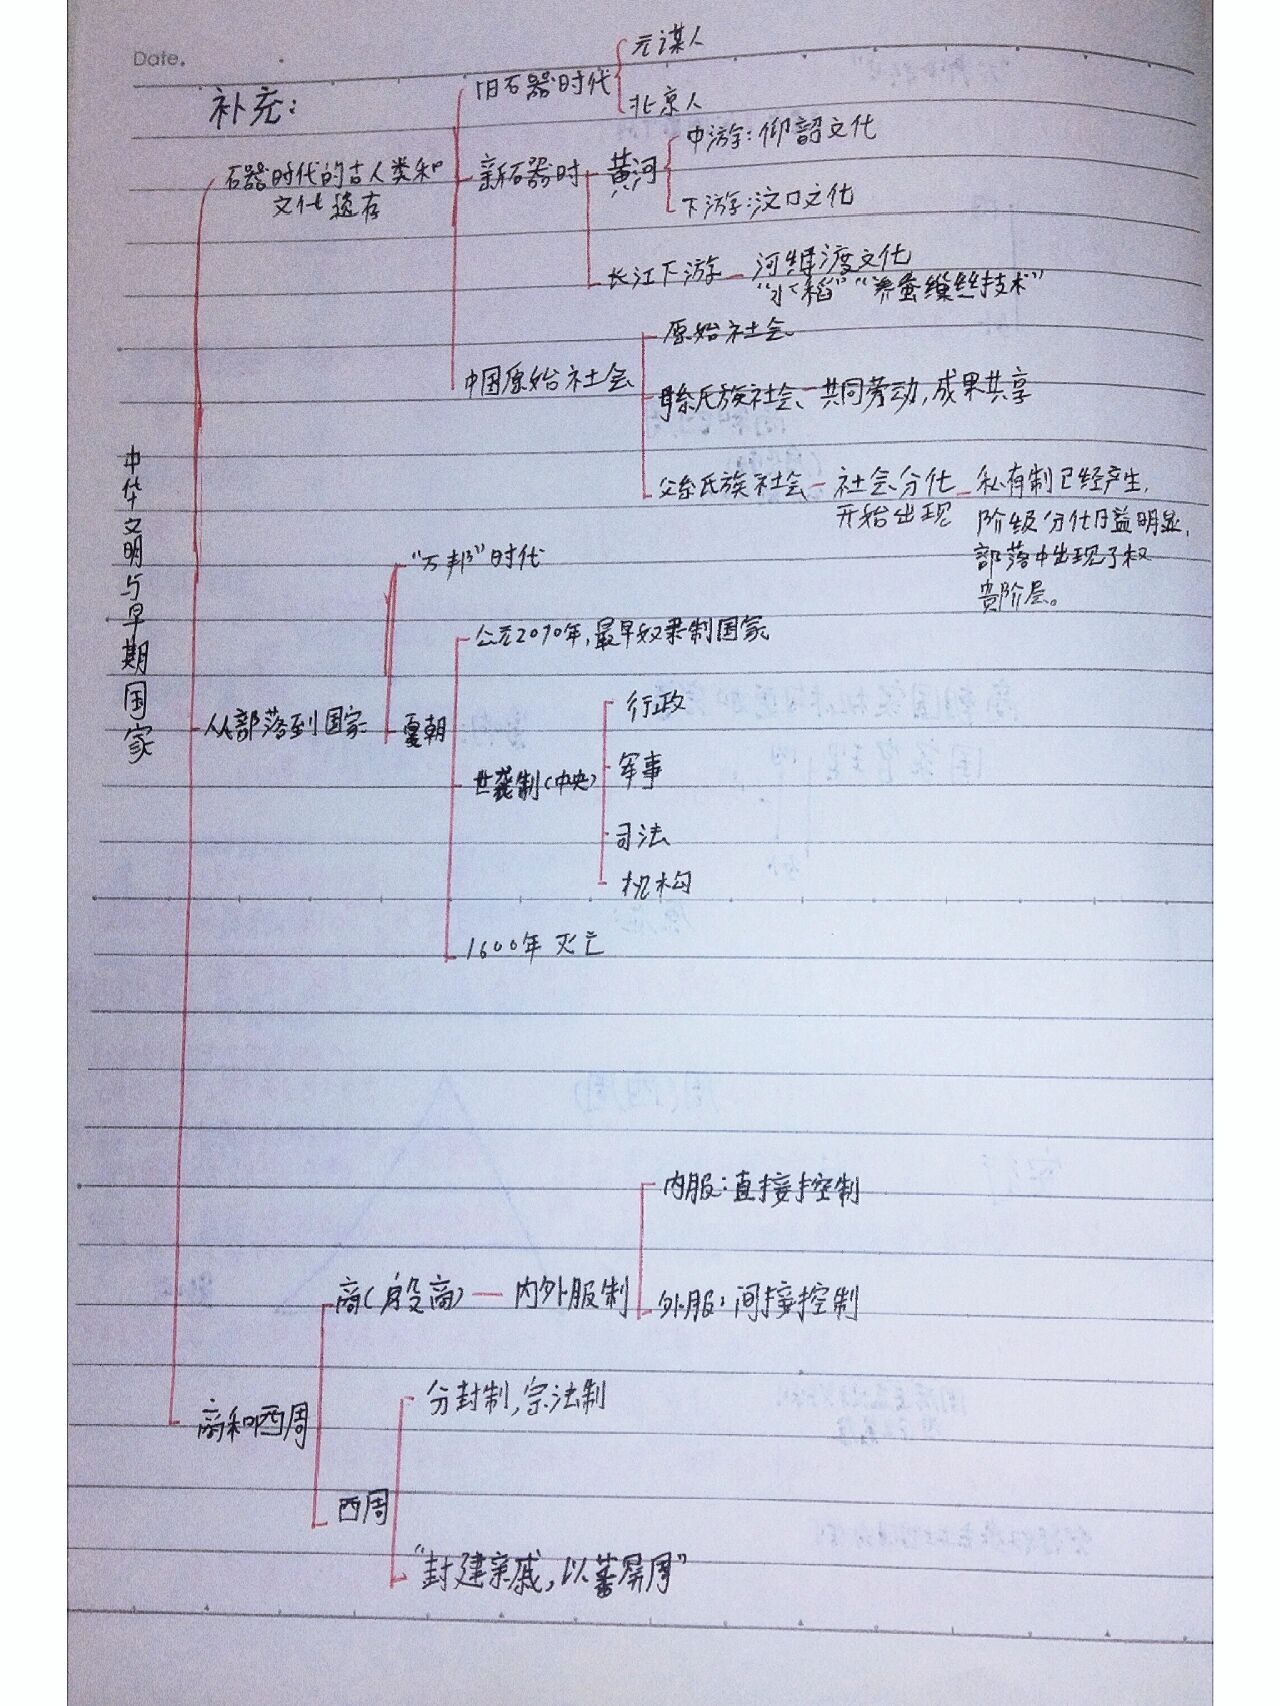 Date.
补充：
旧石器时代
元谋人
北京人
石器时代的古人类和
文化遗存
新石器时
黄河
中游：仰韶文化
下游：汶口文化
长江下游
河姆渡文化
“水稻”“养蚕缫丝技术”
中国原始社会
原始社会
母系氏族社会 共同劳动，成果共享
父系氏族社会
社会分化
开始出现
私有制已经产生，
阶级分化日益明显，
部落中出现了权
贵阶层。
中华文明与早期国家
从部落到国家
“万邦”时代
夏朝
公元2070年，最早奴隶制国家
世袭制（中央）
行政
军事
司法
机构
1600年 灭亡
商和西周
商（殷商）
内外服制
内服：直接控制
外服：间接控制
西周
分封制，宗法制
“封建亲戚，以蕃屏周”